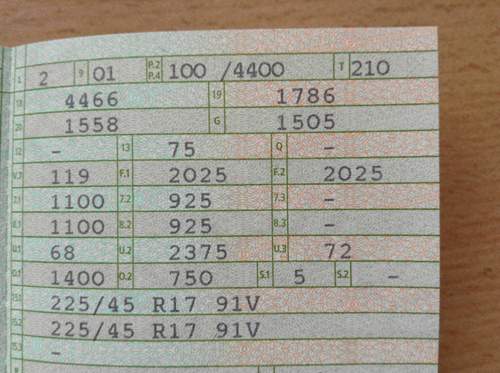 L 2 9 01 P.2 P.4 100 /4400 T 210
18 4466 19 1786
20 1558 G 1505
12 - 13 75 Q -
V.7 119 F.1 2025 F.2 2025
7.1 1100 7.2 925 7.3 -
8.1 1100 8.2 925 8.3 -
U.1 68 U.2 2375 U.3 72
O.1 1400 O.2 750 S.1 5 S.2 -
15.1 225/45 R17 91V
15.2 225/45 R17 91V
15.3 -